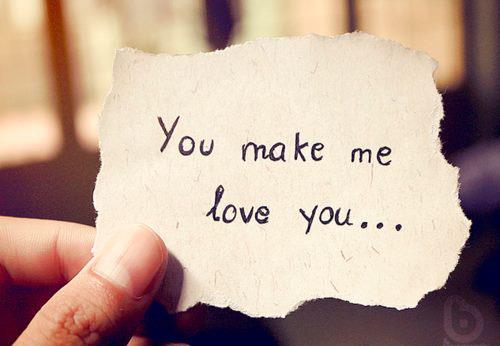 You make me
love you...